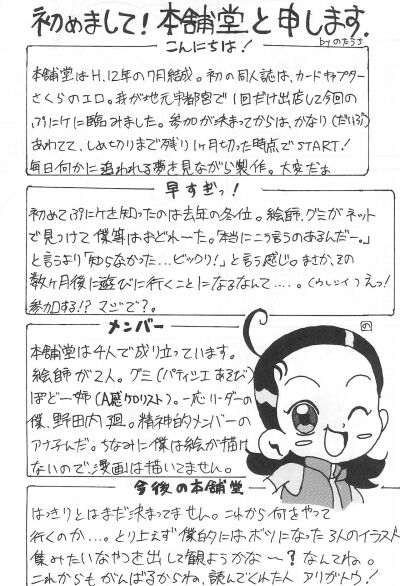 初めまして！本舗堂と申します。
by のだうち
こんにちは！
本舗堂はH.12年の7月結成。初の同人誌は、カードキャプター
さくらのエロ。我が地元宇都宮で1回だけ出店して今回の
ぷにケに臨みました。参加が決まってからは、かなり(だいぶ)
あわてて、しめ切りまで残り1ヶ月切った時点でSTART！
毎日何かに追われる夢を見ながら製作。大変だよ
早すぎっ！
初めてぷにケを知ったのは去年の冬位。絵師、グミがネット
で見つけて僕等はおどれ〜た。「本当にこう言うのあるんだー。」
と言うより「知らなかった…ビックリ！」と言う感じ。まさか、その
数ヶ月後に遊びに行くことになるなんて…。(うれしイ)えっ！
参加する！？マジで？。
メンバー
の
本舗堂は4人で成り立っています。
絵師が2人。グミ(パティシエあるび)
ぽどー姉(A感ケロリスト)。一応リーダーの
僕、野田内廻。精神的メンバーの
アナ子んだ。ちなみに僕は絵が描け
ないので漫画は描いてません。
今後の本舗堂
はっきりとはまだ決まってません。これから何をやって
行くのか…。とりあえず僕的にはボツになった3人のイラスト
集みたいなやつを出して観ようかな〜？なんてね。
これからもがんばるからね、読んでくれた人アリがトウ！